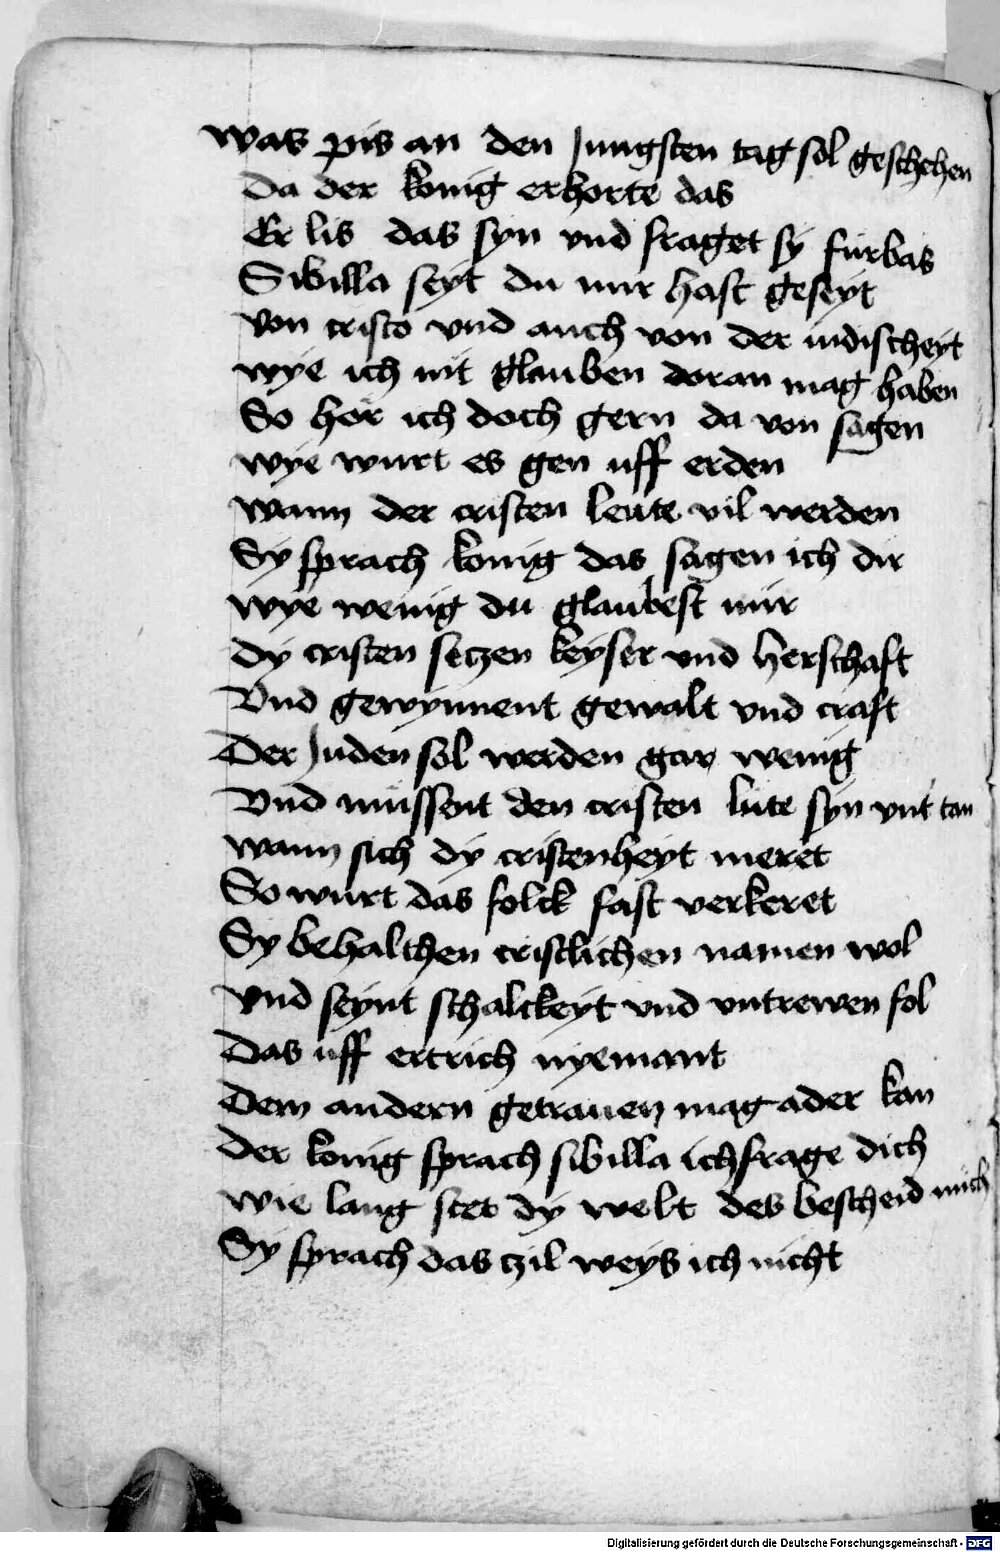 was pis an den Jungsten tag sol geschehen
Da der konig erhorte das
Er lis das syn vnd fraget sy furbas
Sibilla seyt du mir hast geseyt
von cristo vnd auch von der iudischeyt
wye ich nit glauben doran mag haben
So hor ich doch gern da von sagen
wye wurt es gen uff erden
wann der cristen leute vil werden
Sy sprach konig das sagen ich dir
wye wenig du glaubest mir
dy cristen setzen keyser vnd herschaft
Vnd gewynnent gewalt vnd craft
Der Juden sol werden gar wenig
Vnd mussent den cristen lute syn vnt tan
wann sich dy cristenheyt meret
So wurt das folck fast verkeret
Sy behalthen cristlichen namen wol
vnd seynt schalckeyt vnd vntrewen fol
Das uff ertrich nyemant
Dem andern getrauen mag ader kan
Der konig sprach sibilla ich frage dich
wie lang stet dy welt des bescheid mich
Sy sprach das czil weys ich nicht
Digitalisierung gefördert durch die Deutsche Forschungsgemeinschaft - DFG